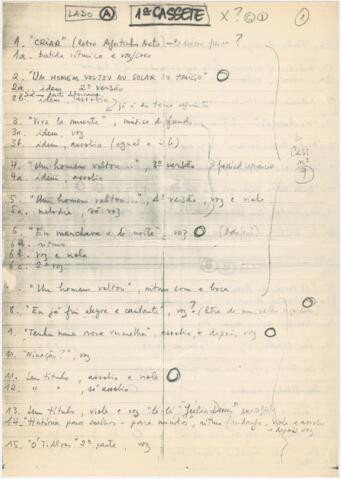 LADO A 1ª CASSETE X? 1
1. "CRIAR" (letra Agostinho Neto) - ?
1a. batida rítmica e voz/coro
2. "UM HOMEM VOLTOU AO SOLAR DO AMIGO"
2a. idem 2ª versão
2b. idem, assobio
3. "Viva la muerte", música de fundo
3a. idem, voz
3b. idem, assobio (igual a
4. "Um homem voltou...", 3ª versão
4a. idem, assobio
5. "Um homem voltou...", 4ª versão, voz e viola
5a. melodia, só voz
6. "Eu marchava de noite", voz
6a. ritmo
6b. voz e viola
6c. 2ª voz
"Um homem voltou", ritmo com a boca
8. "Eu já fui alegre e cantante", voz?
9. "Tenho uma rosa vermelha", assobio, e depois voz
10. "Ninação?", voz
11. Sem título, assobio e viola
12. " " , só assobio
13. Sem título, viola e voz "lá-lá"
14. "História para , ritmo fandango, viola e assobio
e depois voz
15. "Ó Ti Alves" 2ª parte, voz